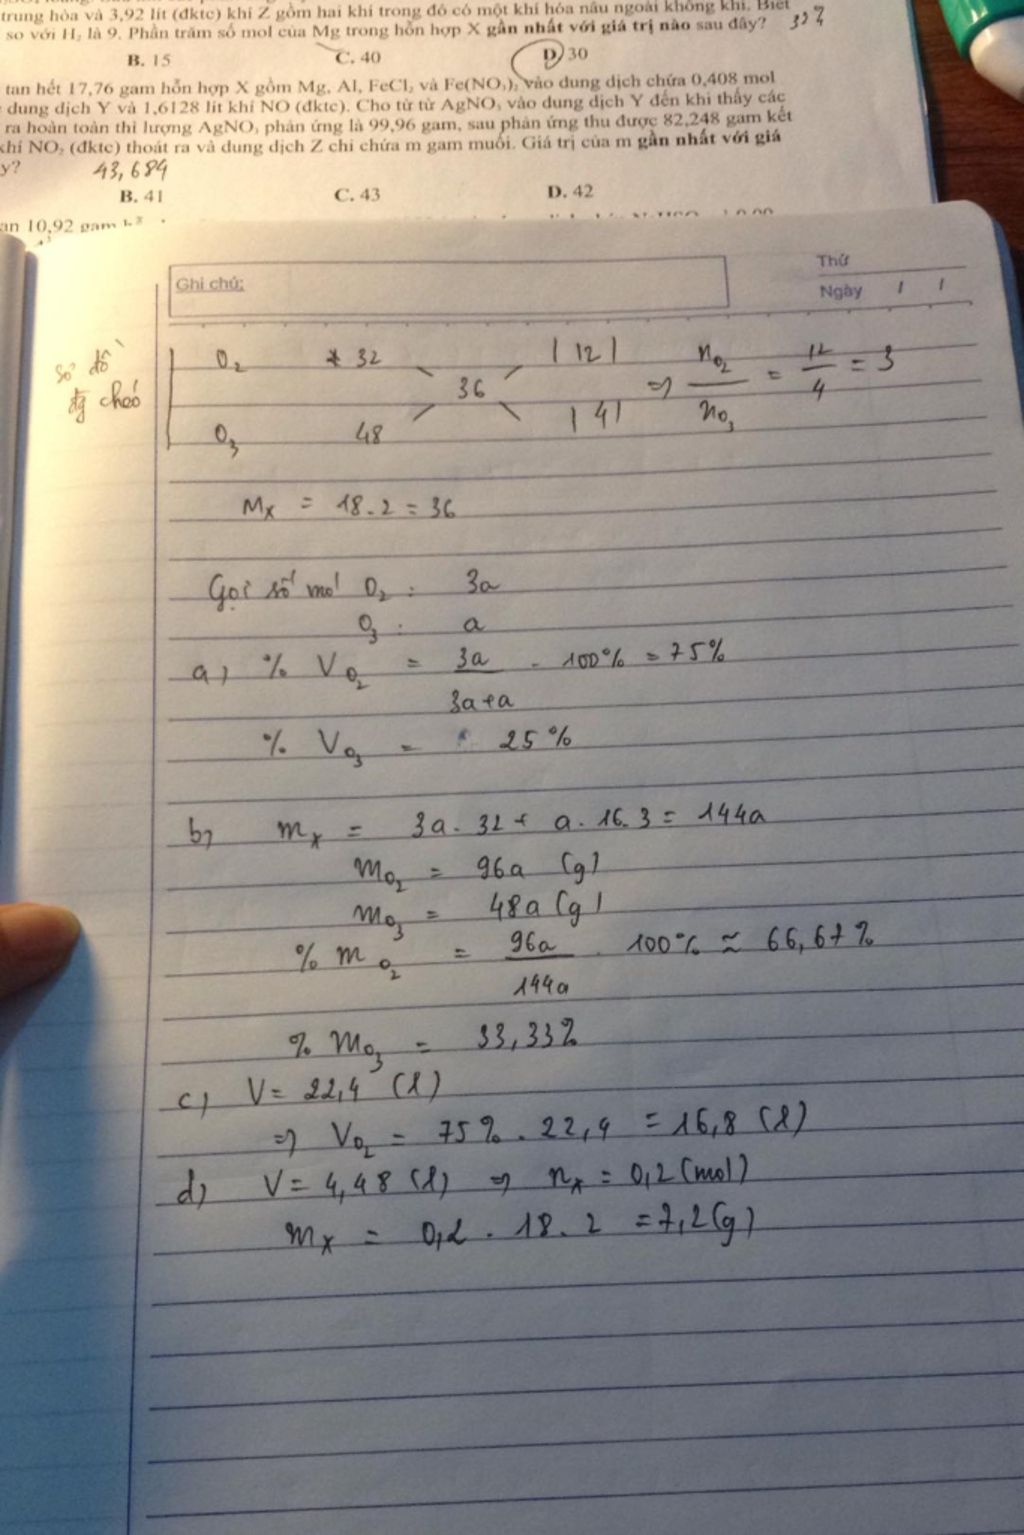 trung hòa và 3,92 lít (đktc) khí Z gồm hai khí trong đó có một khí hóa nâu ngoài không khí. Biết
so với H₂ là 9. Phần trăm số mol của Mg trong hỗn hợp X gần nhất với giá trị nào sau đây?
B. 15 C. 40 D. 30
tan hết 17,76 gam hỗn hợp X gồm Mg, Al, FeCl₂ và Fe(NO₃)₂ vào dung dịch chứa 0,408 mol
dung dịch Y và 1,6128 lít khí NO (đktc). Cho từ từ AgNO₃ vào dung dịch Y đến khi thấy các
ra hoàn toàn thì lượng AgNO₃ phản ứng là 99,96 gam, sau phản ứng thu được 82,248 gam kết
khí NO₂ (đktc) thoát ra và dung dịch Z chỉ chứa m gam muối. Giá trị của m gần nhất với giá
y? 43,684
B. 41 C. 43 D. 42
an 10,92 gam
Ghi chú:
Thứ
Ngày / /
Sơ đồ
đg chéo
O₂ 32 |12|
36 ⇒ nO₂/nO₃ = 12/4 = 3
O₃ 48 |4|
Mx = 18.2 = 36
Gọi số mol O₂ : 3a
O₃ : a
a) % VO₂ = 3a/3a+a . 100% = 75%
% VO₃ = 25%
b) mx = 3a.32 + a.16.3 = 144a
mO₂ = 96a (g)
mO₃ = 48a (g)
% mO₂ = 96a/144a . 100% ≈ 66,67%
% mO₃ = 33,33%
c) V = 22,4 (l)
⇒ VO₂ = 75% . 22,4 = 16,8 (l)
d) V = 4,48 (l) ⇒ nx = 0,2 (mol)
mx = 0,2 . 18 . 2 = 7,2 (g)